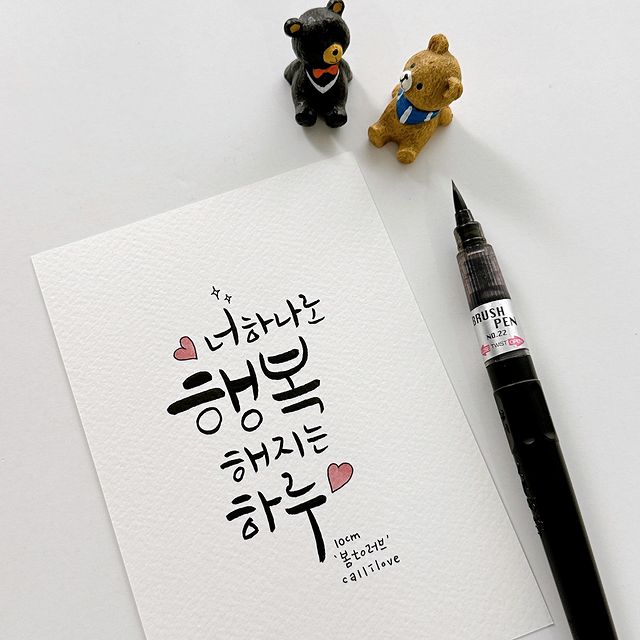 너 하나로
행복
해지는
하루
10cm
'봄to러브'
callilove
BRUSH
PEN
NO.22
TWIST